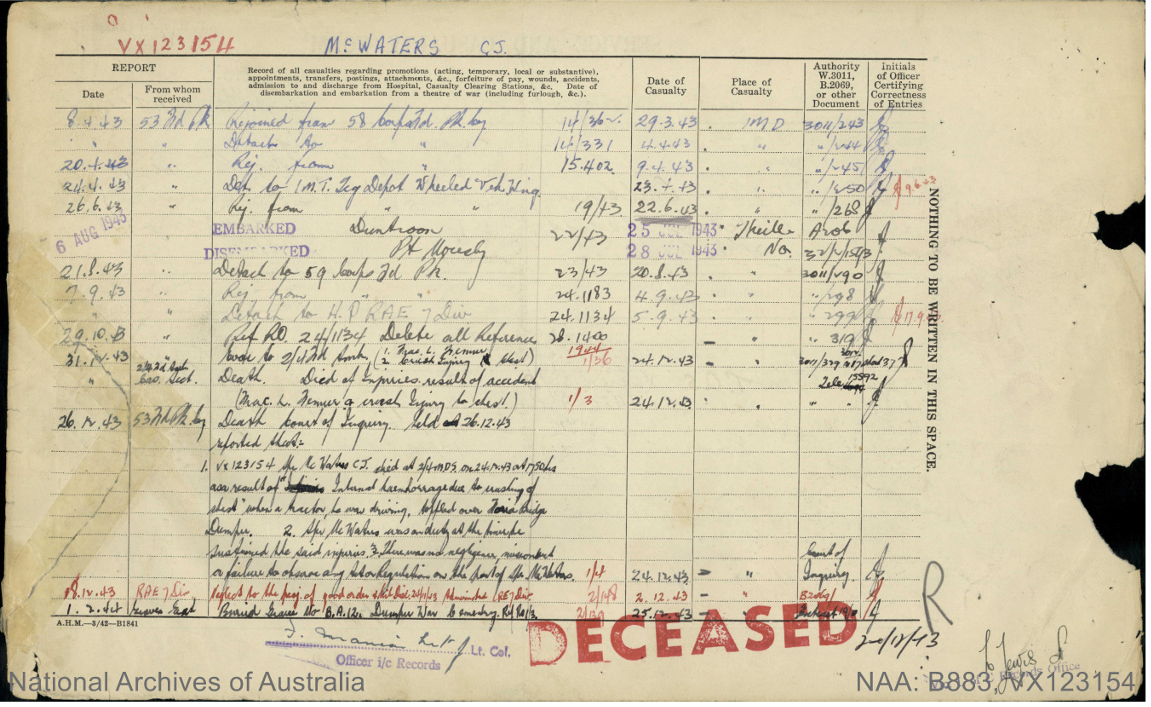 VX123154 McWATERS C.J.
REPORT
Date
From whom received
Record of all casualties regarding promotions (acting, temporary, local or substantive),
appointments, transfers, postings, attachments, &c., forfeiture of pay, wounds, accidents,
admission to and discharge from Hospital, Casualty Clearing Stations, &c. Date of
disembarkation and embarkation from a theatre of war (including furlough, &c.).
Date of Casualty
Place of Casualty
Authority W.3011, B.2069, or other Document
Initials of Officer Certifying Correctness of Entries
8.4.43 53 Fd Pk Rejoined from 58 Corps Fd. Pk. Coy 14/362 29.3.43 1MD 3011/243
" " Detach to " 14/331 4.4.43 " "/244
20.4.43 " Rej. from " 15.402 9.4.43 " "/245
24.4.43 " Det. to 1 M.T. Trg Depot Wheeled Veh Wing 23.4.43 " "/250 9.6.43
26.6.43 " Rej. from " " 19/43 22.6.43 " "/268
6 AUG 1943 EMBARKED Duntroon 22/43 25 JUL 1943 A206
DISEMBARKED Pt Moresby 28 JUL 1943
21.8.43 " Detach to 59 Corps Fd Pk. 23/43 20.8.43 " 3011/290
7.9.43 " Rej from " " 24.1183 4.9.43 " "/298
" Detach to H.Q RAE 7 Div 24.1134 5.9.43 " "/299
29.10.43 " Ref RO. 24/1134 Delete all Reference 28.1400 " "/319
31.12.43 evac to 2/4 Fd Amb (1. Frac. L. Femur 2. Crush Injury chest) 1/26 24.12.43 "
" Death. Died of Injuries result of accident
(Frac. L. Femur & crush Injury to chest.) 1/3 24.12.43 "
26.12.43 53 Fd Pk Coy Death Court of Inquiry held 26.12.43
reported that:-
1. VX123154 Spr McWaters C.J. died at 2/4 MDS on 24.12.43 at 1750 hrs
as a result of Internal haemorrhage due to crushing of
chest when a tractor, he was driving, toppled over Bridge
Dumpu. 2. Spr McWaters was on duty at the time he
sustained the said injuries. 3. There was no negligence, misconduct
or failure to observe any Act or Regulations on the part of Spr McWaters. 1/4 24.12.43 " Court of Inquiry
18.12.43 RAE 7 Div Neglect to the prej. of good order & Mil Disc. 2/148 2.12.43 " B2069/
1.2.44 Graves Regt Buried Grave No B.A.12. Dumpu War Cemetery. 25.12.43 "
NOTHING TO BE WRITTEN IN THIS SPACE.
A.H.M.—3/42—B1841
Lt. Col.
Officer i/c Records
DECEASED
R
Lewis
Records Office
National Archives of Australia
NAA: B883, VX123154